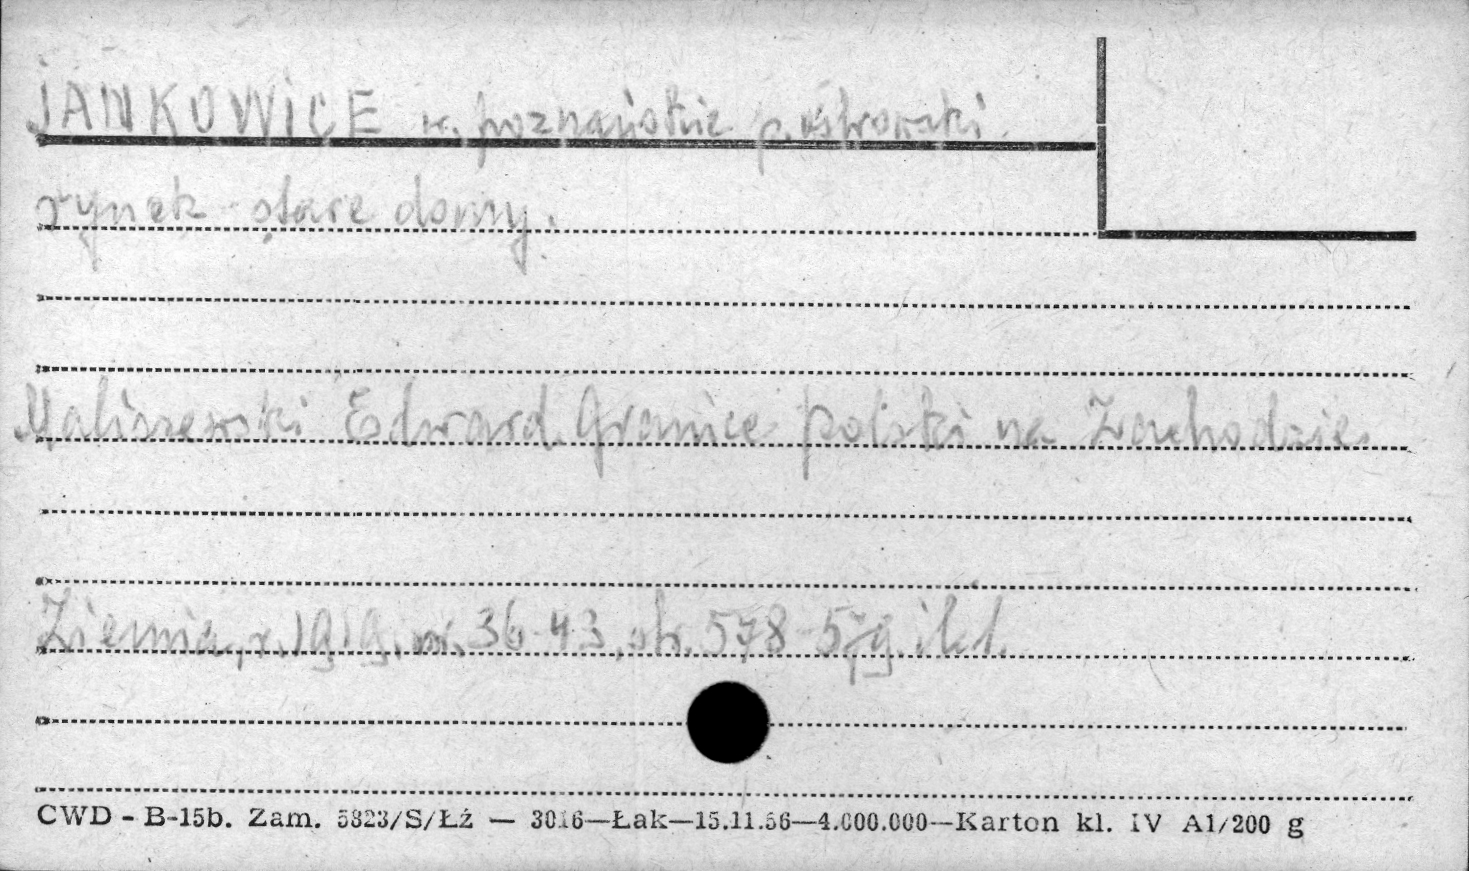 JANKOWICE w. poznańskie p. ostrowski.
rynek - stare domy.
Maliszewski Edward. Granice polski na Zachodzie.
Ziemia, r. 1919, nr. 36-43, str. 578-579. ilal.
CWD - B-15b. Zam. 5823/S/Łź — 3016—Łak—15.11.56—4.000.000—Karton kl. IV A1/200 g